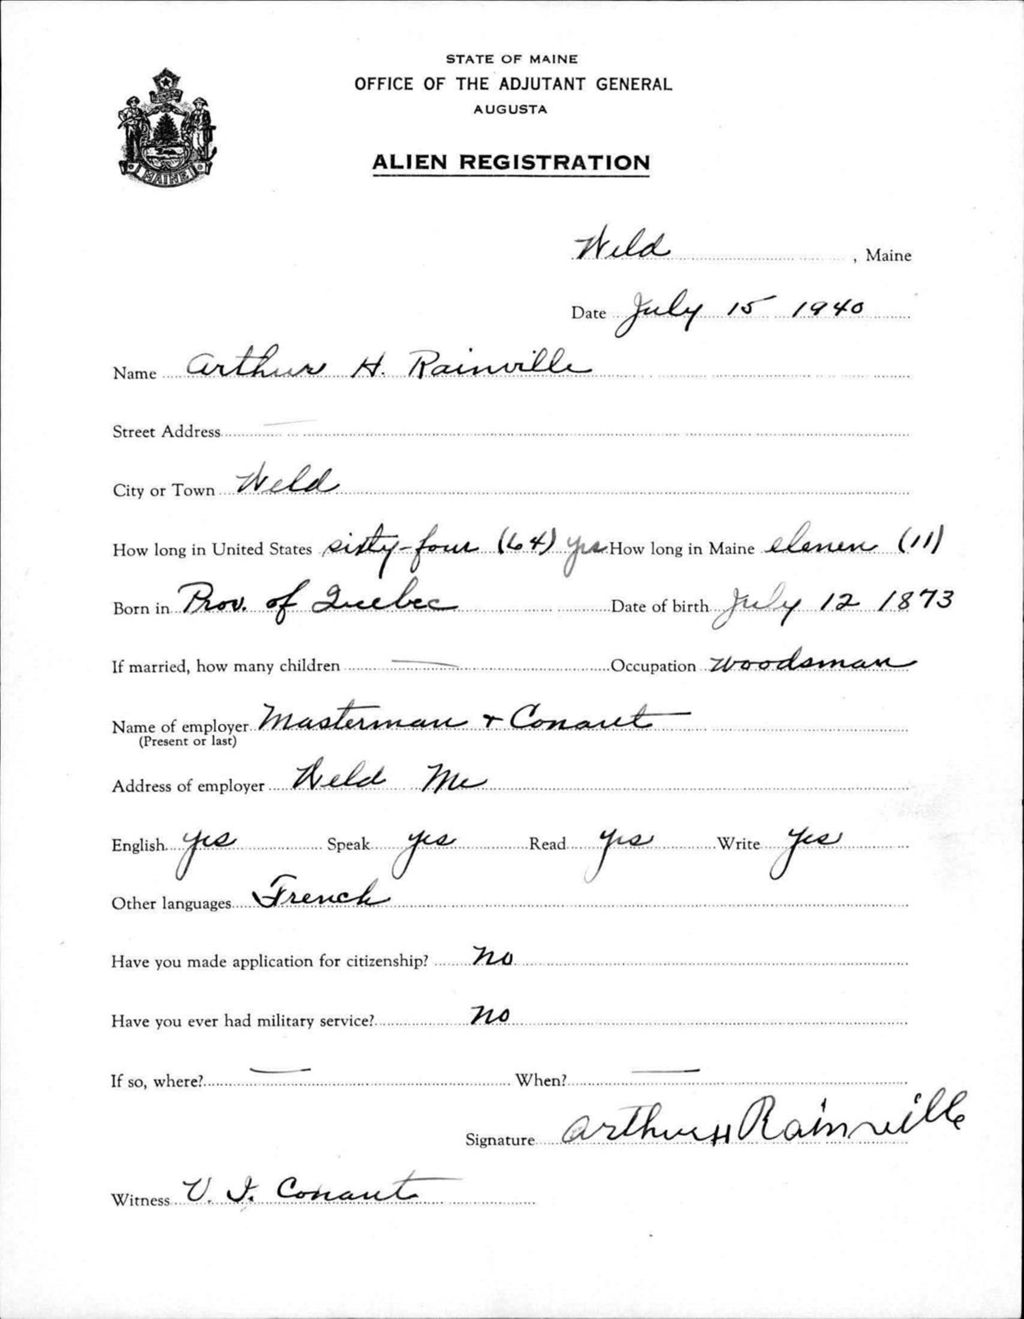 STATE OF MAINE
OFFICE OF THE ADJUTANT GENERAL
AUGUSTA
ALIEN REGISTRATION
MAINE
Weld, Maine
Date July 15 1940
Name Arthur H. Rainville
Street Address —
City or Town Weld
How long in United States sixty-four (64) yrs How long in Maine eleven (11)
Born in Prov. of Quebec Date of birth July 12 1873
If married, how many children — Occupation Woodsman
Name of employer Masterman + Conant
(Present or last)
Address of employer Weld Me
English yes Speak yes Read yes Write Yes
Other languages French
Have you made application for citizenship? No
Have you ever had military service? No
If so, where? — When? —
Signature Arthur H Rainville
Witness V. I. Conant